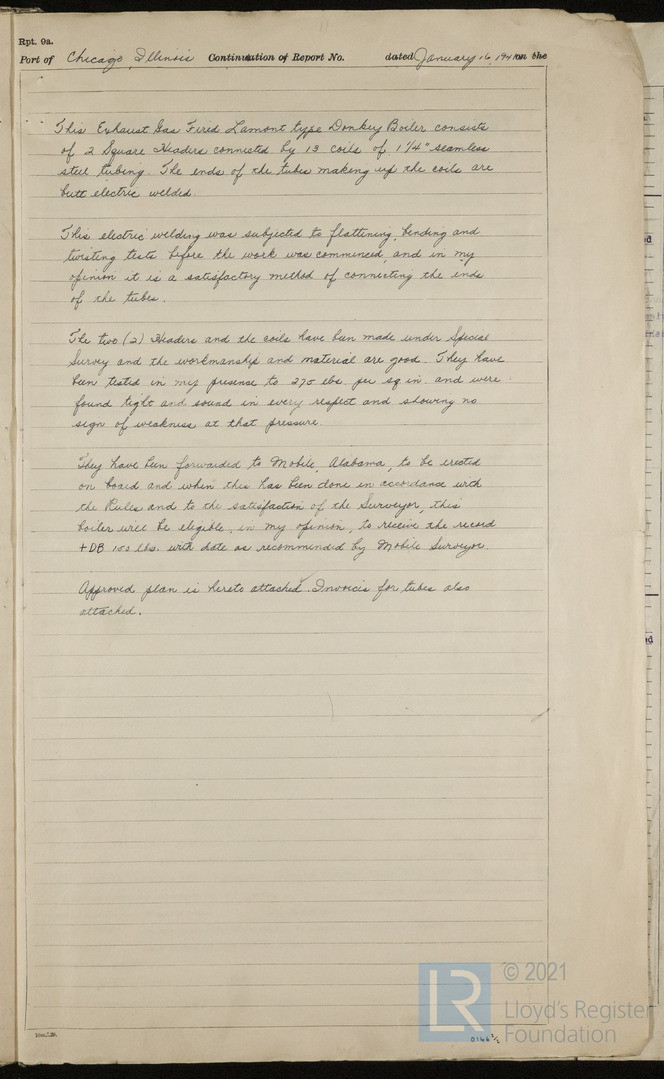 Rpt. 9a.
Port of Chicago, Illinois Continuation of Report No. dated January 16, 1941 on the
This Exhaust Gas Fired Lamont type Donkey Boiler consists
of 2 Square Headers connected by 13 coils of 1 1/4" seamless
steel tubing. The ends of the tubes making up the coils are
butt electric welded.
This electric welding was subjected to flattening, bending and
twisting tests before the work was commenced, and in my
opinion it is a satisfactory method of connecting the ends
of the tubes.
The two (2) Headers and the coils have been made under Special
Survey and the workmanship and material are good. They have
been tested in my presence to 275 lbs. per sq. in. and were
found tight and sound in every respect and showing no
sign of weakness at that pressure.
They have been forwarded to Mobile, Alabama, to be erected
on board and when this has been done in accordance with
the Rules and to the satisfaction of the Surveyor, this
boiler will be eligible, in my opinion, to receive the record
+DB 150 lbs. with date as recommended by Mobile Surveyor.
Approved plan is hereto attached. Invoices for tubes also
attached.
LR © 2021
Lloyd's Register
Foundation